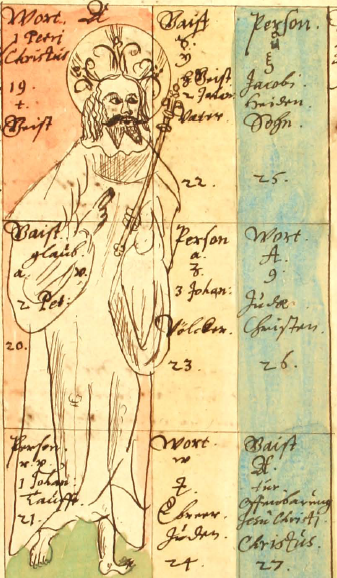 Wort.
1 Petri
Christus
19.
t.
Geist
Geist
8.
y
Geist
2 Jacob
Vater.
22.
Person.
Jacobi
Heiden.
Sohn.
25.
Geist.
glaub
a. w.
2 Pet:
20.
Person
a.
z.
3 Johan:
Völcker.
23.
Wort.
A.
9.
Judæ
Christen.
26.
Person.
1 Johan:
Taufft.
21.
Wort.
w
Juden.
24.
Geist.
Offenbarung
Jesu Christi.
Christus.
27.